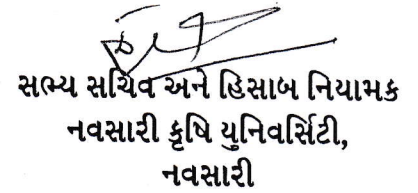 સભ્ય સચિવ અને હિસાબ નિયામક
નવસારી કૃષિ યુનિવર્સિટી,
નવસારી